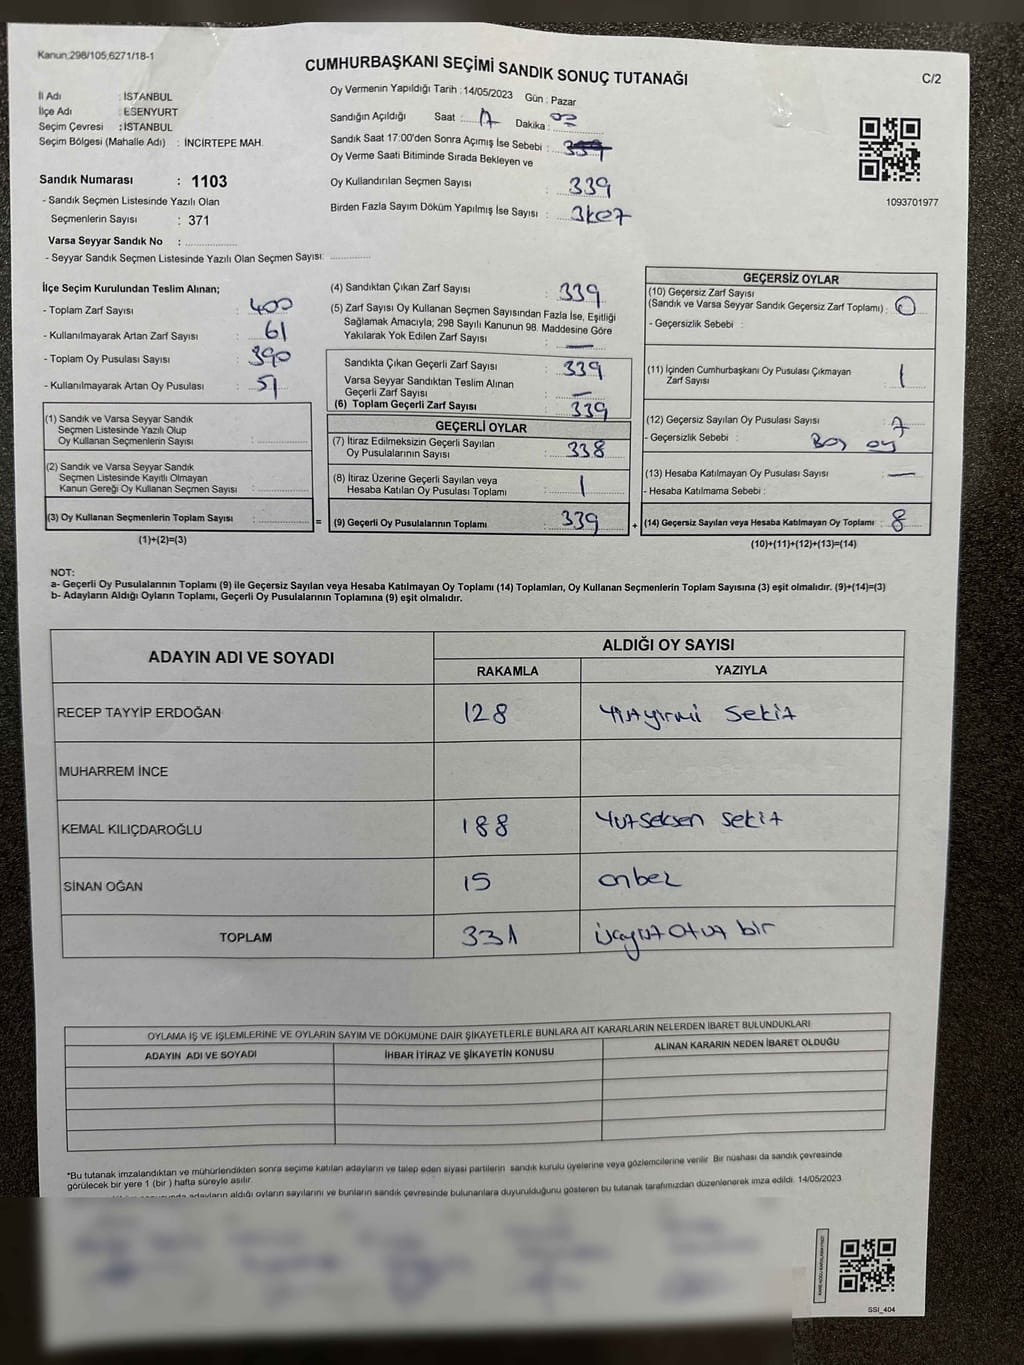 Kanun;298/105,6271/18-1
CUMHURBAŞKANI SEÇİMİ SANDIK SONUÇ TUTANAĞI
C/2
İl Adı : İSTANBUL
İlçe Adı : ESENYURT
Seçim Çevresi : İSTANBUL
Seçim Bölgesi (Mahalle Adı) : İNCİRTEPE MAH.
Sandık Numarası : 1103
- Sandık Seçmen Listesinde Yazılı Olan
Seçmenlerin Sayısı : 371
Varsa Seyyar Sandık No :
- Seyyar Sandık Seçmen Listesinde Yazılı Olan Seçmen Sayısı:
Oy Vermenin Yapıldığı Tarih :14/05/2023 Gün : Pazar
Sandığın Açıldığı Saat : 17 Dakika : 00
Sandık Saat 17:00'den Sonra Açımış İse Sebebi :
Oy Verme Saati Bitiminde Sırada Bekleyen ve
Oy Kullandırılan Seçmen Sayısı : 339
Birden Fazla Sayım Döküm Yapılmış İse Sayısı : 3kez
1093701977
İlçe Seçim Kurulundan Teslim Alınan;
- Toplam Zarf Sayısı : 400
- Kullanılmayarak Artan Zarf Sayısı : 61
- Toplam Oy Pusulası Sayısı : 390
- Kullanılmayarak Artan Oy Pusulası : 51
(1) Sandık ve Varsa Seyyar Sandık
Seçmen Listesinde Yazılı Olup
Oy Kullanan Seçmenlerin Sayısı :
(2) Sandık ve Varsa Seyyar Sandık
Seçmen Listesinde Kayıtlı Olmayan
Kanun Gereği Oy Kullanan Seçmen Sayısı :
(3) Oy Kullanan Seçmenlerin Toplam Sayısı :
(1)+(2)=(3)
(4) Sandıktan Çıkan Zarf Sayısı : 339
(5) Zarf Sayısı Oy Kullanan Seçmen Sayısından Fazla İse, Eşitliği
Sağlamak Amacıyla; 298 Sayılı Kanunun 98. Maddesine Göre
Yakılarak Yok Edilen Zarf Sayısı : —
Sandıkta Çıkan Geçerli Zarf Sayısı : 339
Varsa Seyyar Sandıktan Teslim Alınan
Geçerli Zarf Sayısı : —
(6) Toplam Geçerli Zarf Sayısı : 339
GEÇERLİ OYLAR
(7) İtiraz Edilmeksizin Geçerli Sayılan
Oy Pusulalarının Sayısı : 338
(8) İtiraz Üzerine Geçerli Sayılan veya
Hesaba Katılan Oy Pusulası Toplamı : 1
= (9) Geçerli Oy Pusulalarının Toplamı : 339
GEÇERSİZ OYLAR
(10) Geçersiz Zarf Sayısı
(Sandık ve Varsa Seyyar Sandık Geçersiz Zarf Toplamı) : 0
- Geçersizlik Sebebi :
(11) İçinden Cumhurbaşkanı Oy Pusulası Çıkmayan
Zarf Sayısı : 1
(12) Geçersiz Sayılan Oy Pusulası Sayısı : 7
- Geçersizlik Sebebi : Boş oy
(13) Hesaba Katılmayan Oy Pusulası Sayısı : —
- Hesaba Katılmama Sebebi :
+ (14) Geçersiz Sayılan veya Hesaba Katılmayan Oy Toplamı : 8
(10)+(11)+(12)+(13)=(14)
NOT:
a- Geçerli Oy Pusulalarının Toplamı (9) ile Geçersiz Sayılan veya Hesaba Katılmayan Oy Toplamı (14) Toplamları, Oy Kullanan Seçmenlerin Toplam Sayısına (3) eşit olmalıdır. (9)+(14)=(3)
b- Adayların Aldığı Oyların Toplamı, Geçerli Oy Pusulalarının Toplamına (9) eşit olmalıdır.
ADAYIN ADI VE SOYADI
ALDIĞI OY SAYISI
RAKAMLA YAZIYLA
RECEP TAYYİP ERDOĞAN 128 Yüzyirmi Sekiz
MUHARREM İNCE
KEMAL KILIÇDAROĞLU 188 Yüzseksen Sekiz
SİNAN OĞAN 15 onbeş
TOPLAM 331 üçyüz otuz bir
OYLAMA İŞ VE İŞLEMLERİNE VE OYLARIN SAYIM VE DÖKÜMÜNE DAİR ŞİKAYETLERLE BUNLARA AİT KARARLARIN NELERDEN İBARET BULUNDUKLARI
ADAYIN ADI VE SOYADI İHBAR İTİRAZ VE ŞİKAYETİN KONUSU ALINAN KARARIN NEDEN İBARET OLDUĞU
*Bu tutanak imzalandıktan ve mühürlendikten sonra seçime katılan adayların ve talep eden siyasi partilerin sandık kurulu üyelerine veya gözlemcilerine verilir. Bir nüshası da sandık çevresinde
görülecek bir yere 1 (bir ) hafta süreyle asılır.
adayların aldığı oyların sayılarını ve bunların sandık çevresinde bulunanlara duyurulduğunu gösteren bu tutanak tarafımızdan düzenlenerek imza edildi. 14/05/2023
SSI_404